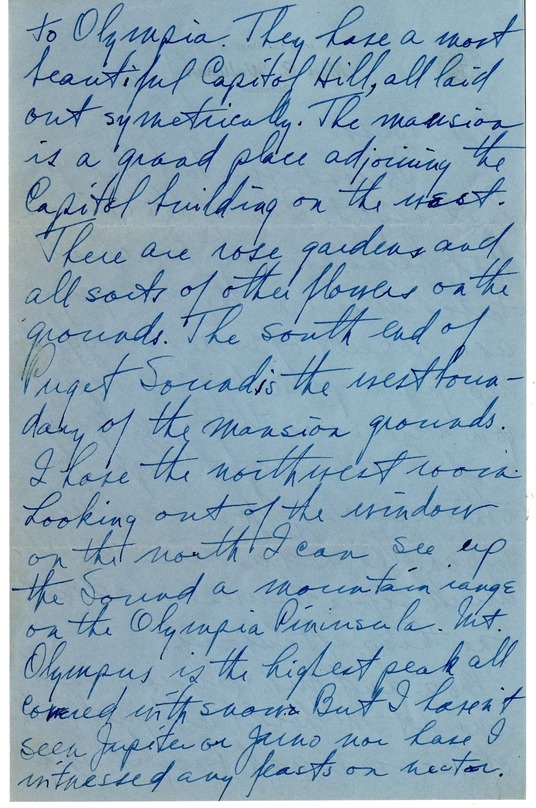 to Olympia. They have a most
beautiful Capitol Hill, all laid
out symetrically. The mansion
is a grand place adjoining the
Capitol building on the west.
There are rose gardens and
all sorts of other flowers on the
grounds. The south end of
Puget Sound is the west boun-
dary of the mansion grounds.
I have the northwest room.
Looking out of the window
on the north I can see up
the Sound a mountain range
on the Olympia Pininsula. Mt.
Olympus is the highest peak all
covered with snow. But I haven't
seen Jupiter or Juno nor have I
witnessed any feasts on nectar.